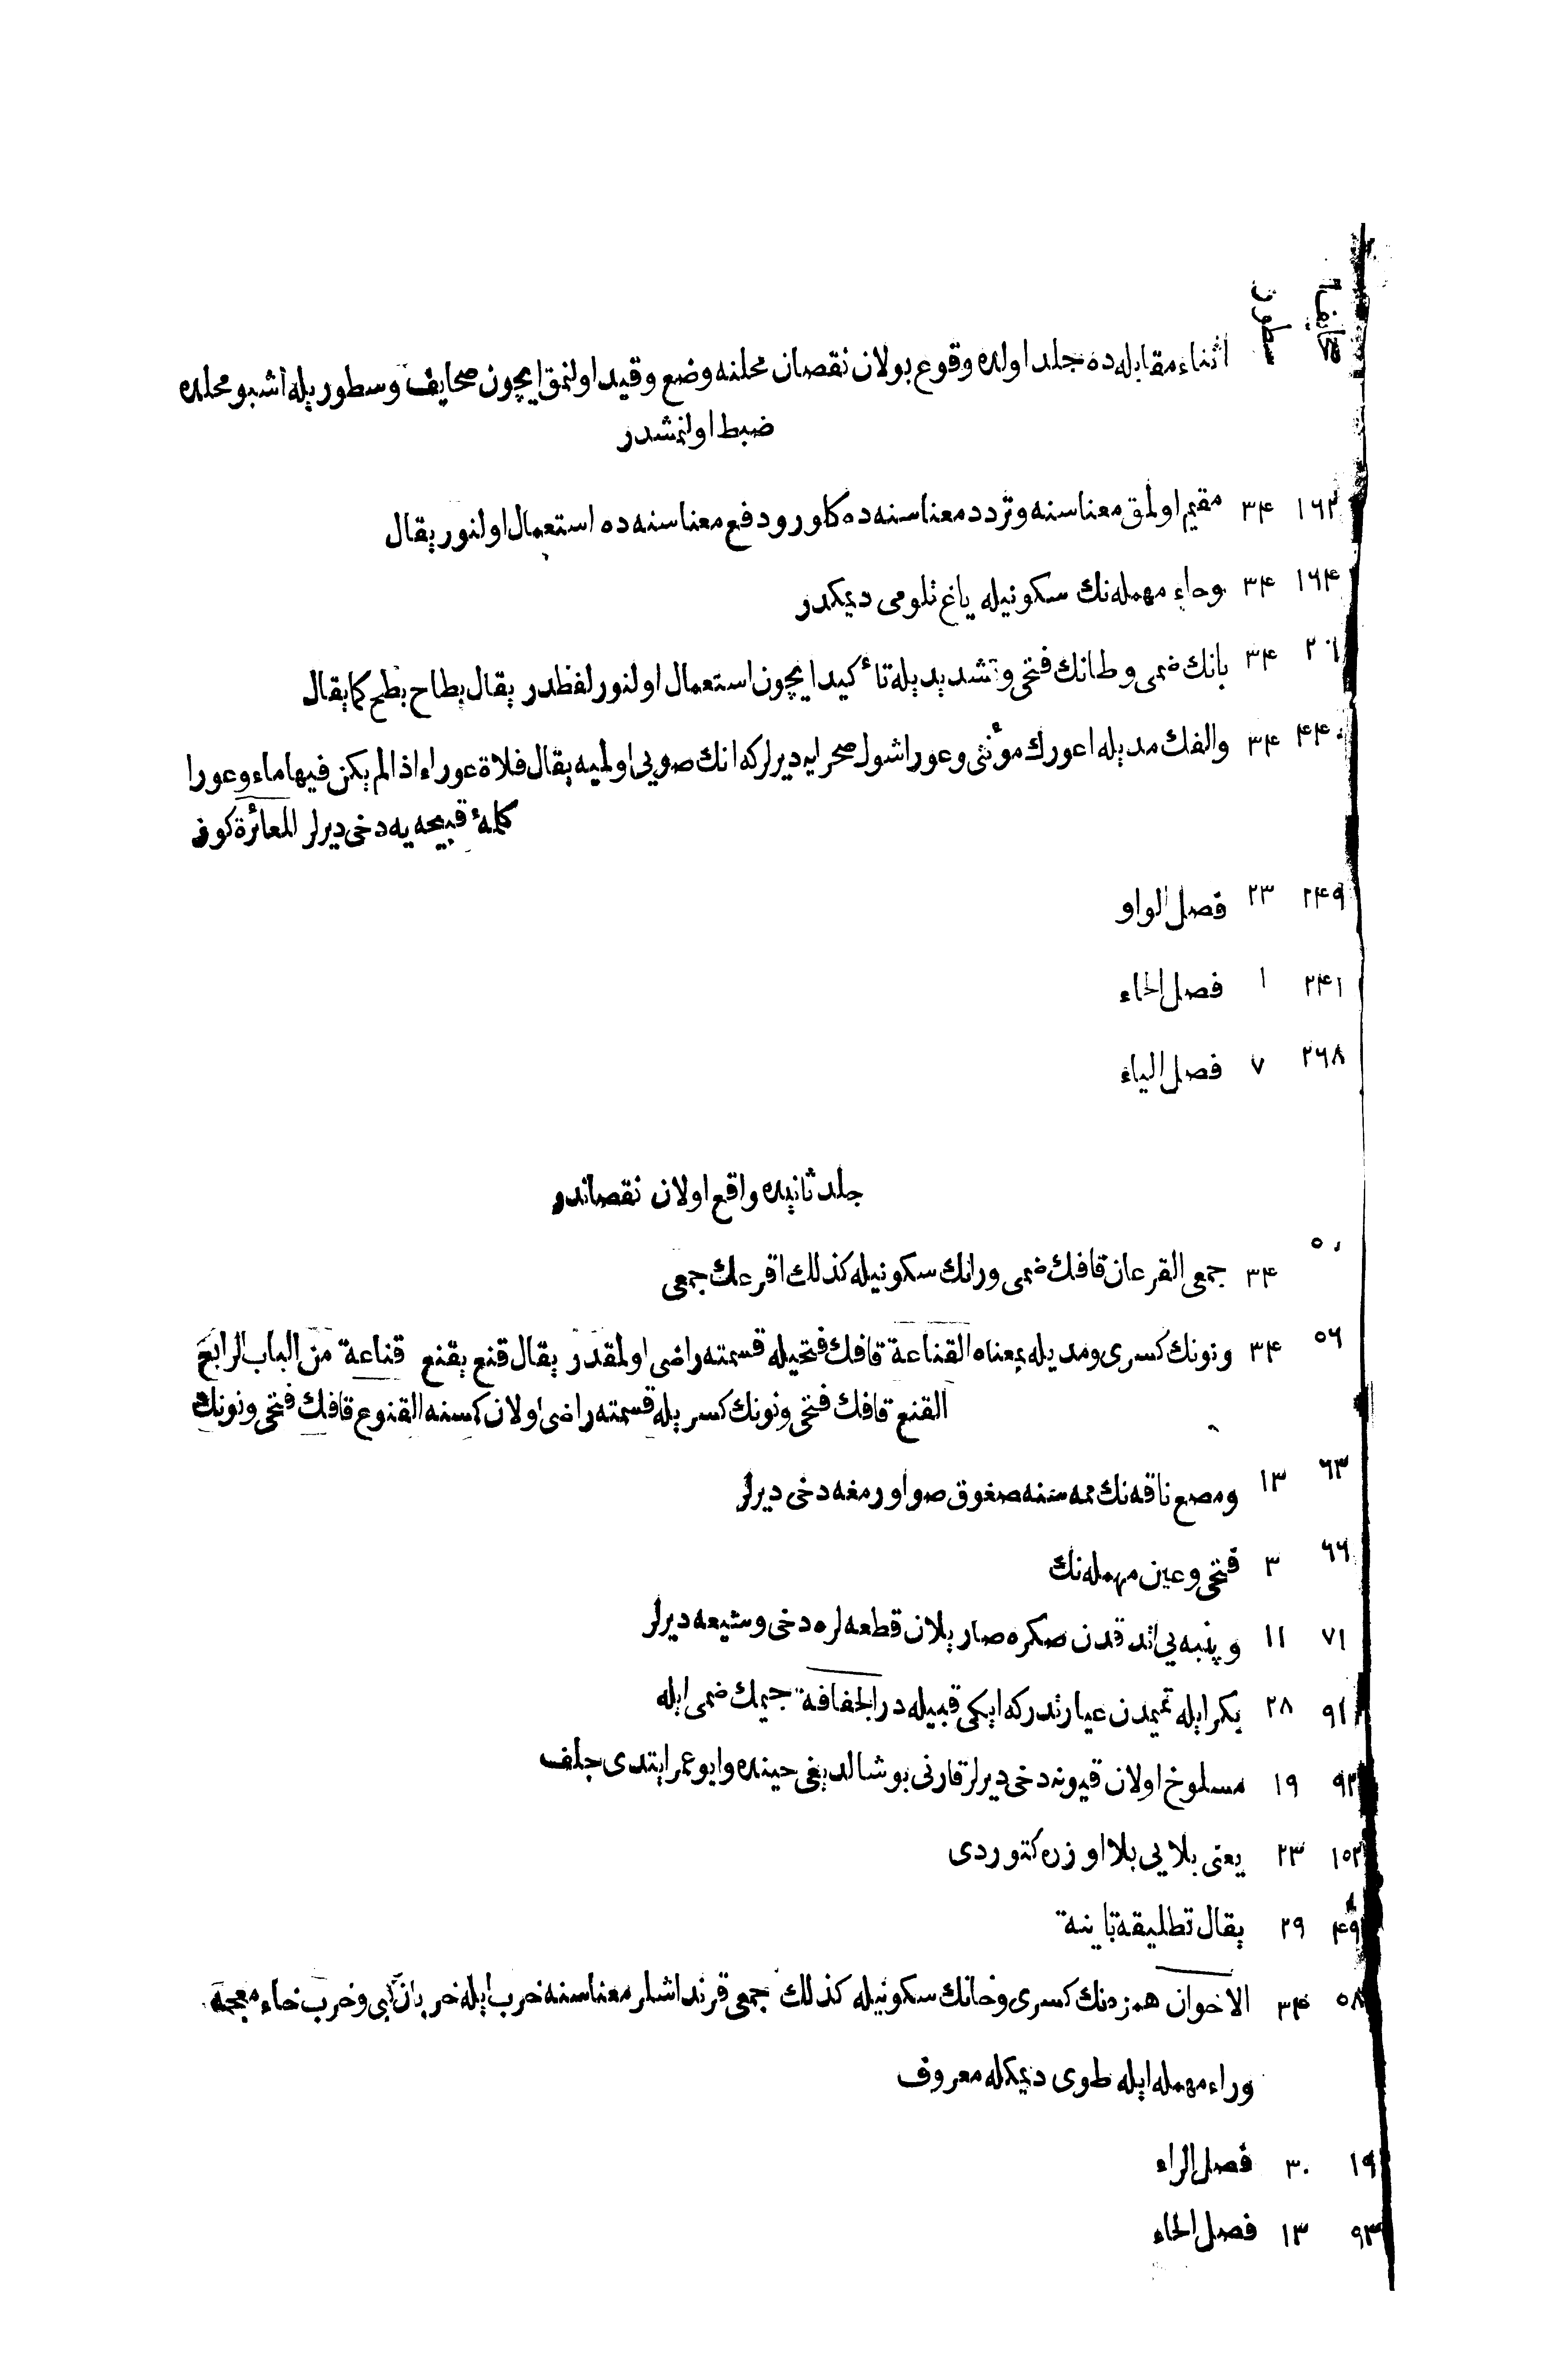 صحايف سطور
اثناء مقابله ده جلد اولده وقوع بولان نقصان محلنه وضع وقيد اولنمق ايچون صحايف وسطور يله اشبو محلده
ضبط اولنمشدر
١٦٢ ٣٤ مقيم اولمق معناسنه وتردد معناسنه ده كلور ودفع معناسنه ده استعمال اولنور يقال
١٦٤ ٣٤ وحاء مهمله نك سكونيله ياغ تلومى ديمكدر
٢٠١ ٣٤ بانك ضمى وطانك فتحى وتشديديله تأكيد ايچون استعمال اولنور لفظدر يقال بطاح بطح كما يقال
٤٤٠ ٣٤ والفك مديله اعورك مؤنثى وعورا شول صحرايه ديرلر كه انك صويى اولميه يقال فلاة عوراء اذا لم يكن فيها ماء وعورا
كلمۀ قبيحه يه دخى ديرلر المعائرة كون
٢٤٩ ٢٣ فصل الواو
٢٤١ ١ فصل الحاء
٢٦٨ ٧ فصل الياء
جلد ثانيده واقع اولان نقصاندر
٥٠ ٣٤ جمعى القرعان قافك ضمى ورانك سكونيله كذلك اقرعك جمعى
٥٦ ٣٤ ونونك كسرى ومديله بمعناه القناعة قافك فتحيله قسمته راضى اولمقدر يقال قنع يقنع قناعة من الباب الرابع
القنع قافك فتحى ونونك كسريله قسمته راضى اولان كسنه القنوع قافك فتحى ونونك
٦٣ ١٣ ومصع ناقه نك ممه سنه صغوق صو اورمغه دخى ديرلر
٦٦ ٣ فتحى وعين مهمله نك
٧١ ١١ وپنبه يى اتدقدن صكره صاريلان قطعه لره دخى وشيعه ديرلر
٩١ ٢٨ بكر ايله تميمدن عبارتدر كه ايكى قبيله در الجفافة جيمك ضمى ايله
٩٢ ١٩ مسلوخ اولان قيونه دخى ديرلر قارنى بوشالديغى حينده وابو عمر ايتدى جلف
١٥٢ ٢٣ يعنى بلايى بلا اوزره كتوردى
٤٩ ٢٩ يقال تطليقة باينة
٥٨ ٣٤ الاخوان همزه نك كسرى وخانك سكونيله كذلك جمعى قرنداشلر معناسنه خرب ايله خربان كبى وخرب خاء معجمه
وراء مهمله ايله طوى ديمكله معروف
١٩ ٣٠ فصل الراء
٩٣ ١٣ فصل الحاء